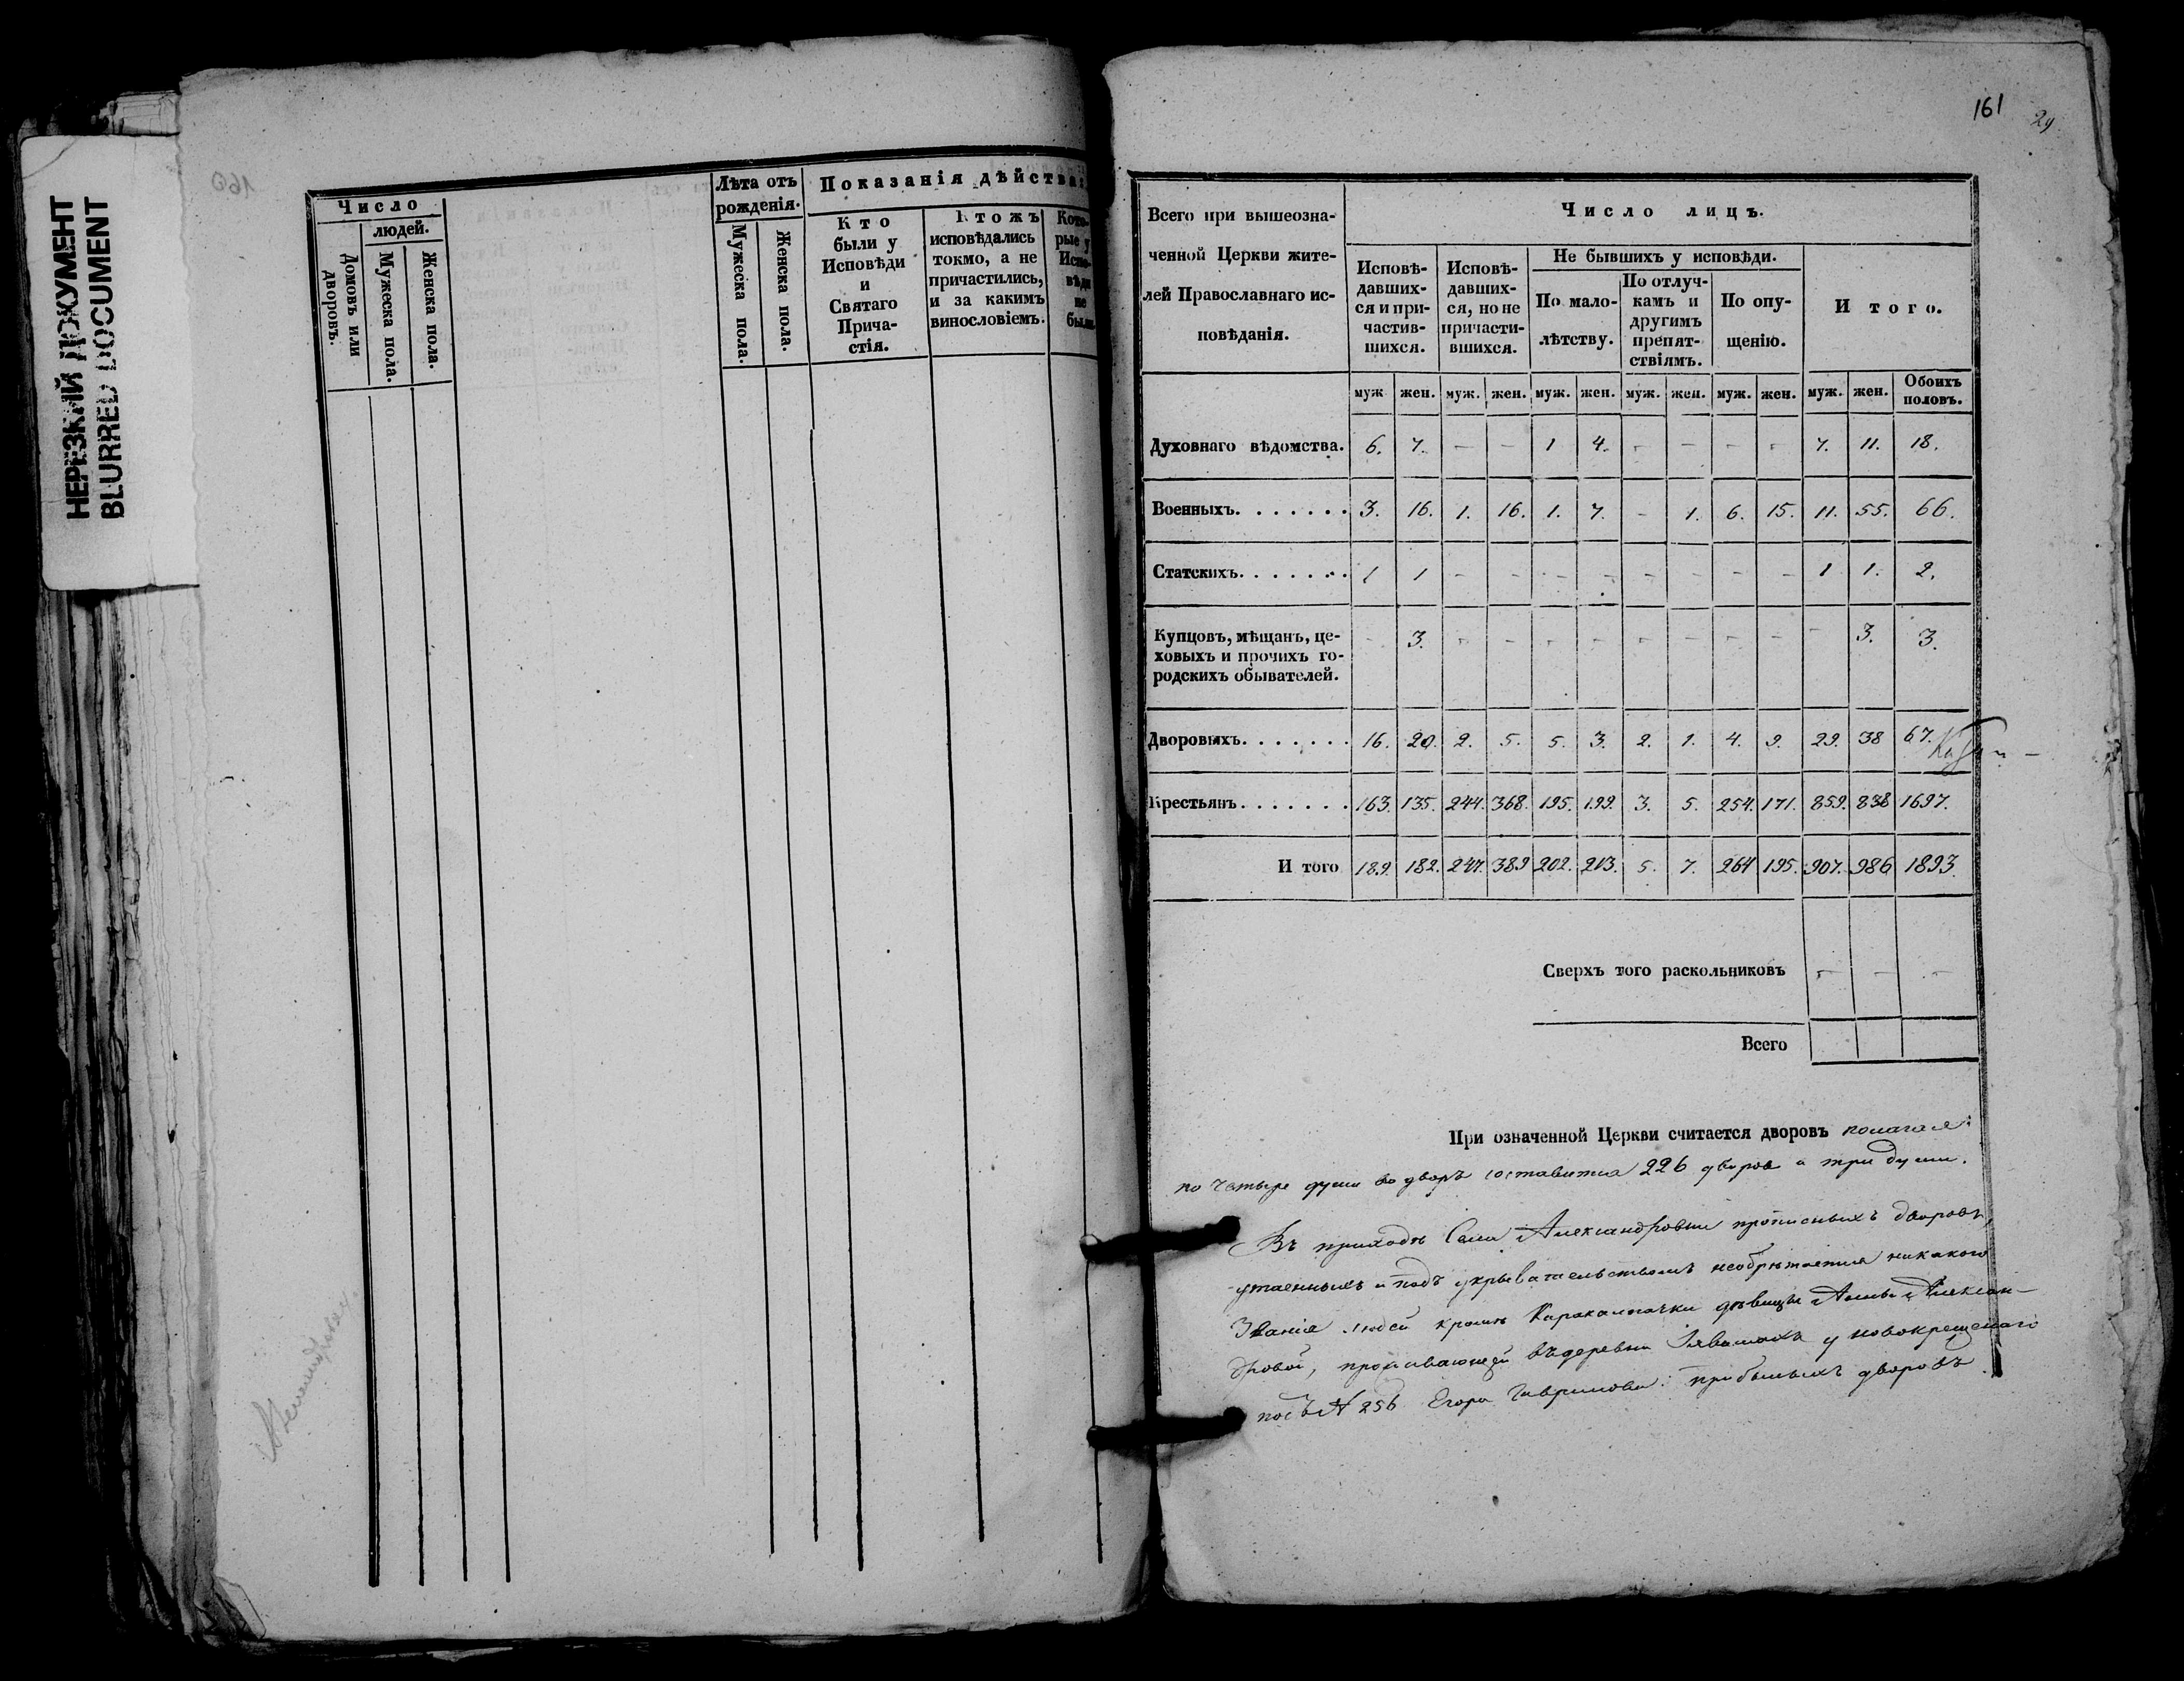 НЕРЕЗКИЙ ДОКУМЕНТ
BLURRED DOCUMENT
160
Число
людей.
Домовъ или дворовъ.
Мужеска пола.
Женска пола.
Лѣта отъ рожденія.
Мужеска пола.
Женска пола.
Показанія дѣйства:
Кто
были у
Исповѣди
и
Святаго
Прича-
стія.
Ктожъ
исповѣдались
токмо, а не
причастились,
и за какимъ
винословіемъ.
Кото-
рые у
Испо-
вѣди
не
были.
161
29
Всего при вышеозна-
ченной Церкви жите-
лей Православнаго ис-
повѣданія.
Число лицъ.
Исповѣ-
давших-
ся и при-
частив-
шихся.
Исповѣ-
давших-
ся, но не
причасти-
вшихся.
Не бывшихъ у исповѣди.
По мало-
лѣтству.
По отлуч-
камъ и
другимъ
препят-
ствіямъ.
По опу-
щенію.
И того.
муж. жен. муж. жен. муж. жен. муж. жен. муж. жен. муж. жен. Обоихъ половъ.
Духовнаго вѣдомства. 6. 7. — — 1 4. — — — — 7. 11. 18.
Военныхъ. . . . . . . 3. 16. 1. 16. 1. 7. — 1. 6. 15. 11. 55. 66.
Статскихъ. . . . . . . 1 1 — — — — — — — — 1 1. 2.
Купцовъ, мѣщанъ, це-
ховыхъ и прочихъ го-
родскихъ обывателей. — 3. — — — — — — — — — 3. 3.
Дворовыхъ. . . . . . . 16. 20. 2. 5. 5. 3. 2. 1. 4. 9. 29. 38 67.
Крестьянъ. . . . . . . 163. 135. 244. 368. 195. 199. 3. 5. 254. 171. 859. 838 1697.
И того 189. 182. 247. 389 202. 213. 5. 7. 264 195. 907. 986 1893
Сверхъ того раскольниковъ — — —
Всего
При означенной Церкви считается дворовъ полагая
по четыре души во дворъ составится 226 дворов и три души.
Въ приходѣ Села Александровки прописныхъ дворовъ,
утаенныхъ и подъ укрывательствомъ необрѣтается никакого
Званія людей кромѣ Каракалпачки дѣвицы Анны Алексан-
дровой, проживающей въ деревни у новокрещенаго
подъ № 256 Егора Гаврилова: прибылыхъ дворовъ